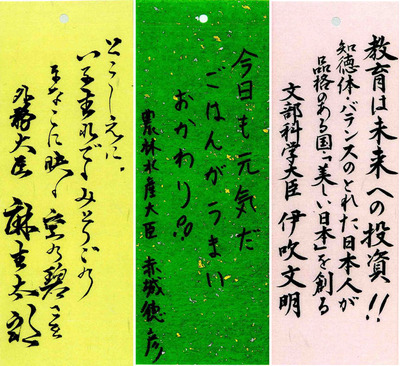 教育は未来への投資!!
知徳体・バランスのとれた日本人が
品格のある国「美しい日本」を創る
文部科学大臣 伊吹文明
今日も元気だ
ごはんがうまい
おかわり!!
農林水産大臣 赤城徳彦
とこしえに、
みどりごの
まなこに映 空の碧さを
外務大臣 麻生太郎